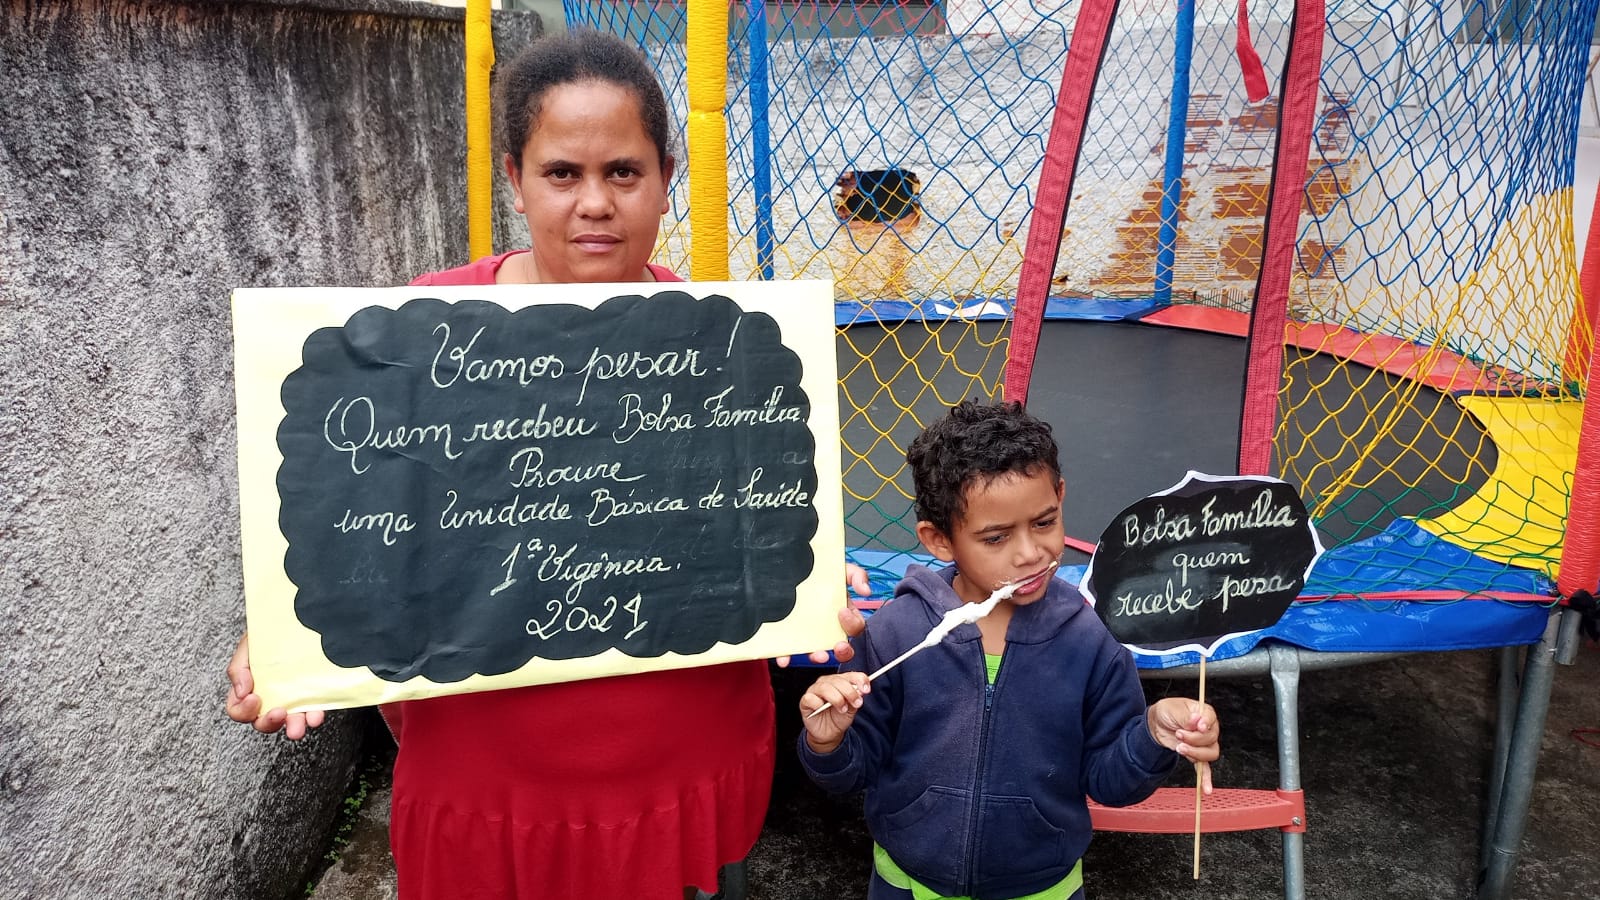 Vamos pesar!
Quem recebeu Bolsa Família.
Procure
uma Unidade Básica de Saúde
1ª Vigência.
2024
Bolsa Família
quem
recebe pesa